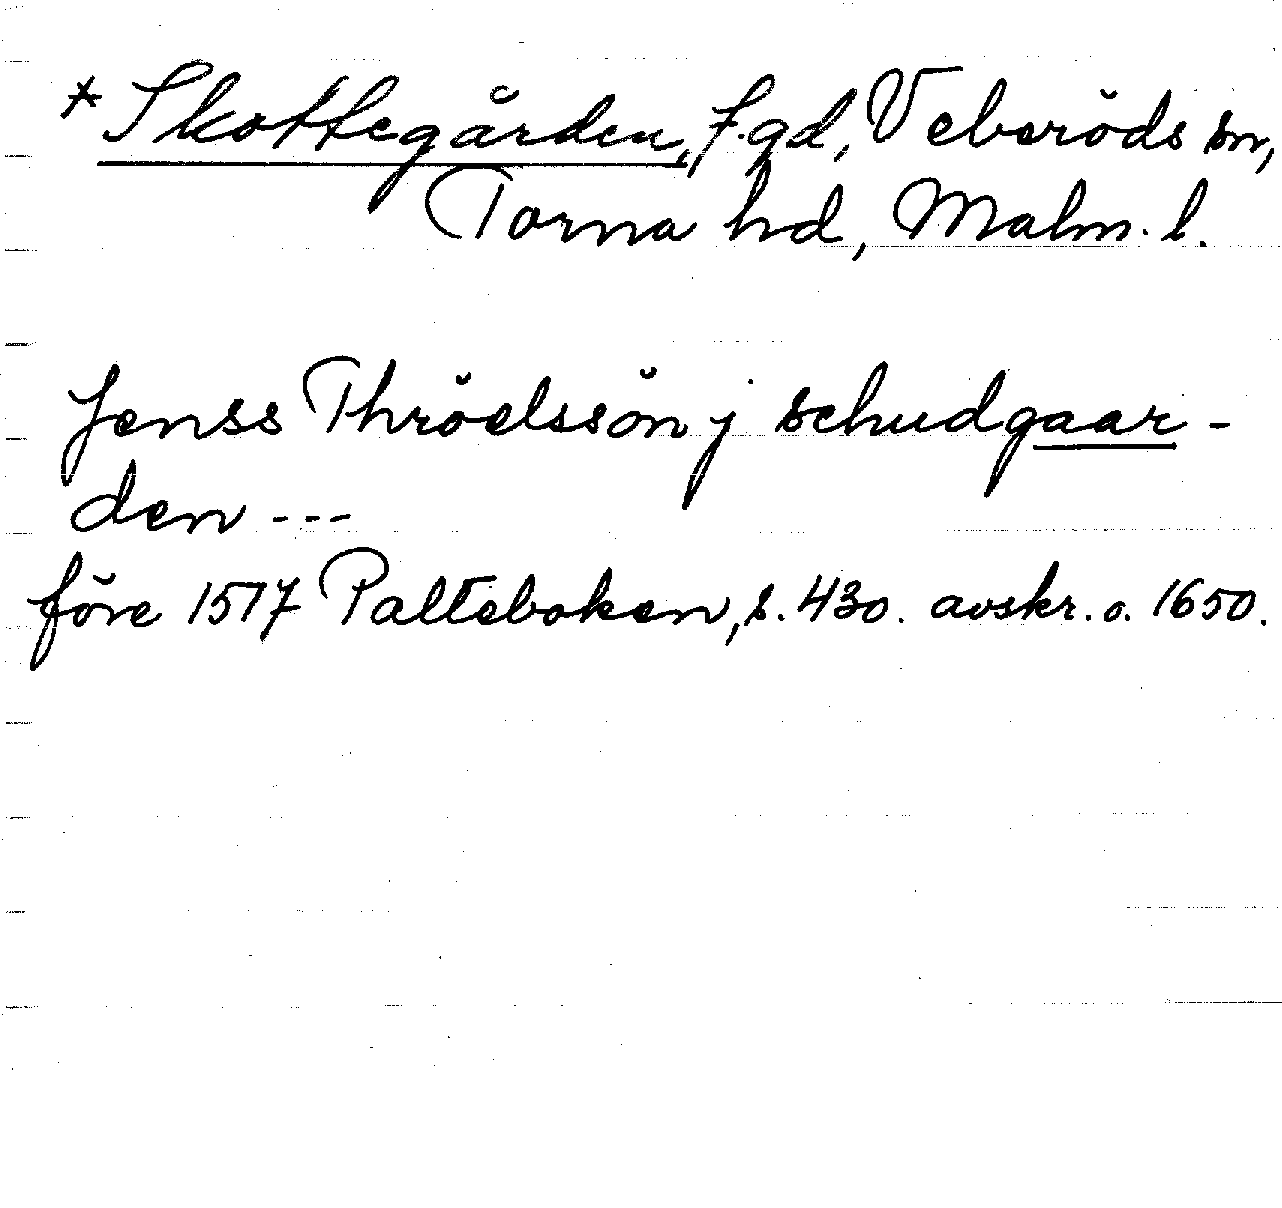 *Skottegården, f.gd, Veberöds sn,
Torna hd, Malm. l.
Jenss Thröelssön j schudgaar-
den ---
före 1517 Palteboken, s. 430. avskr. o. 1650.